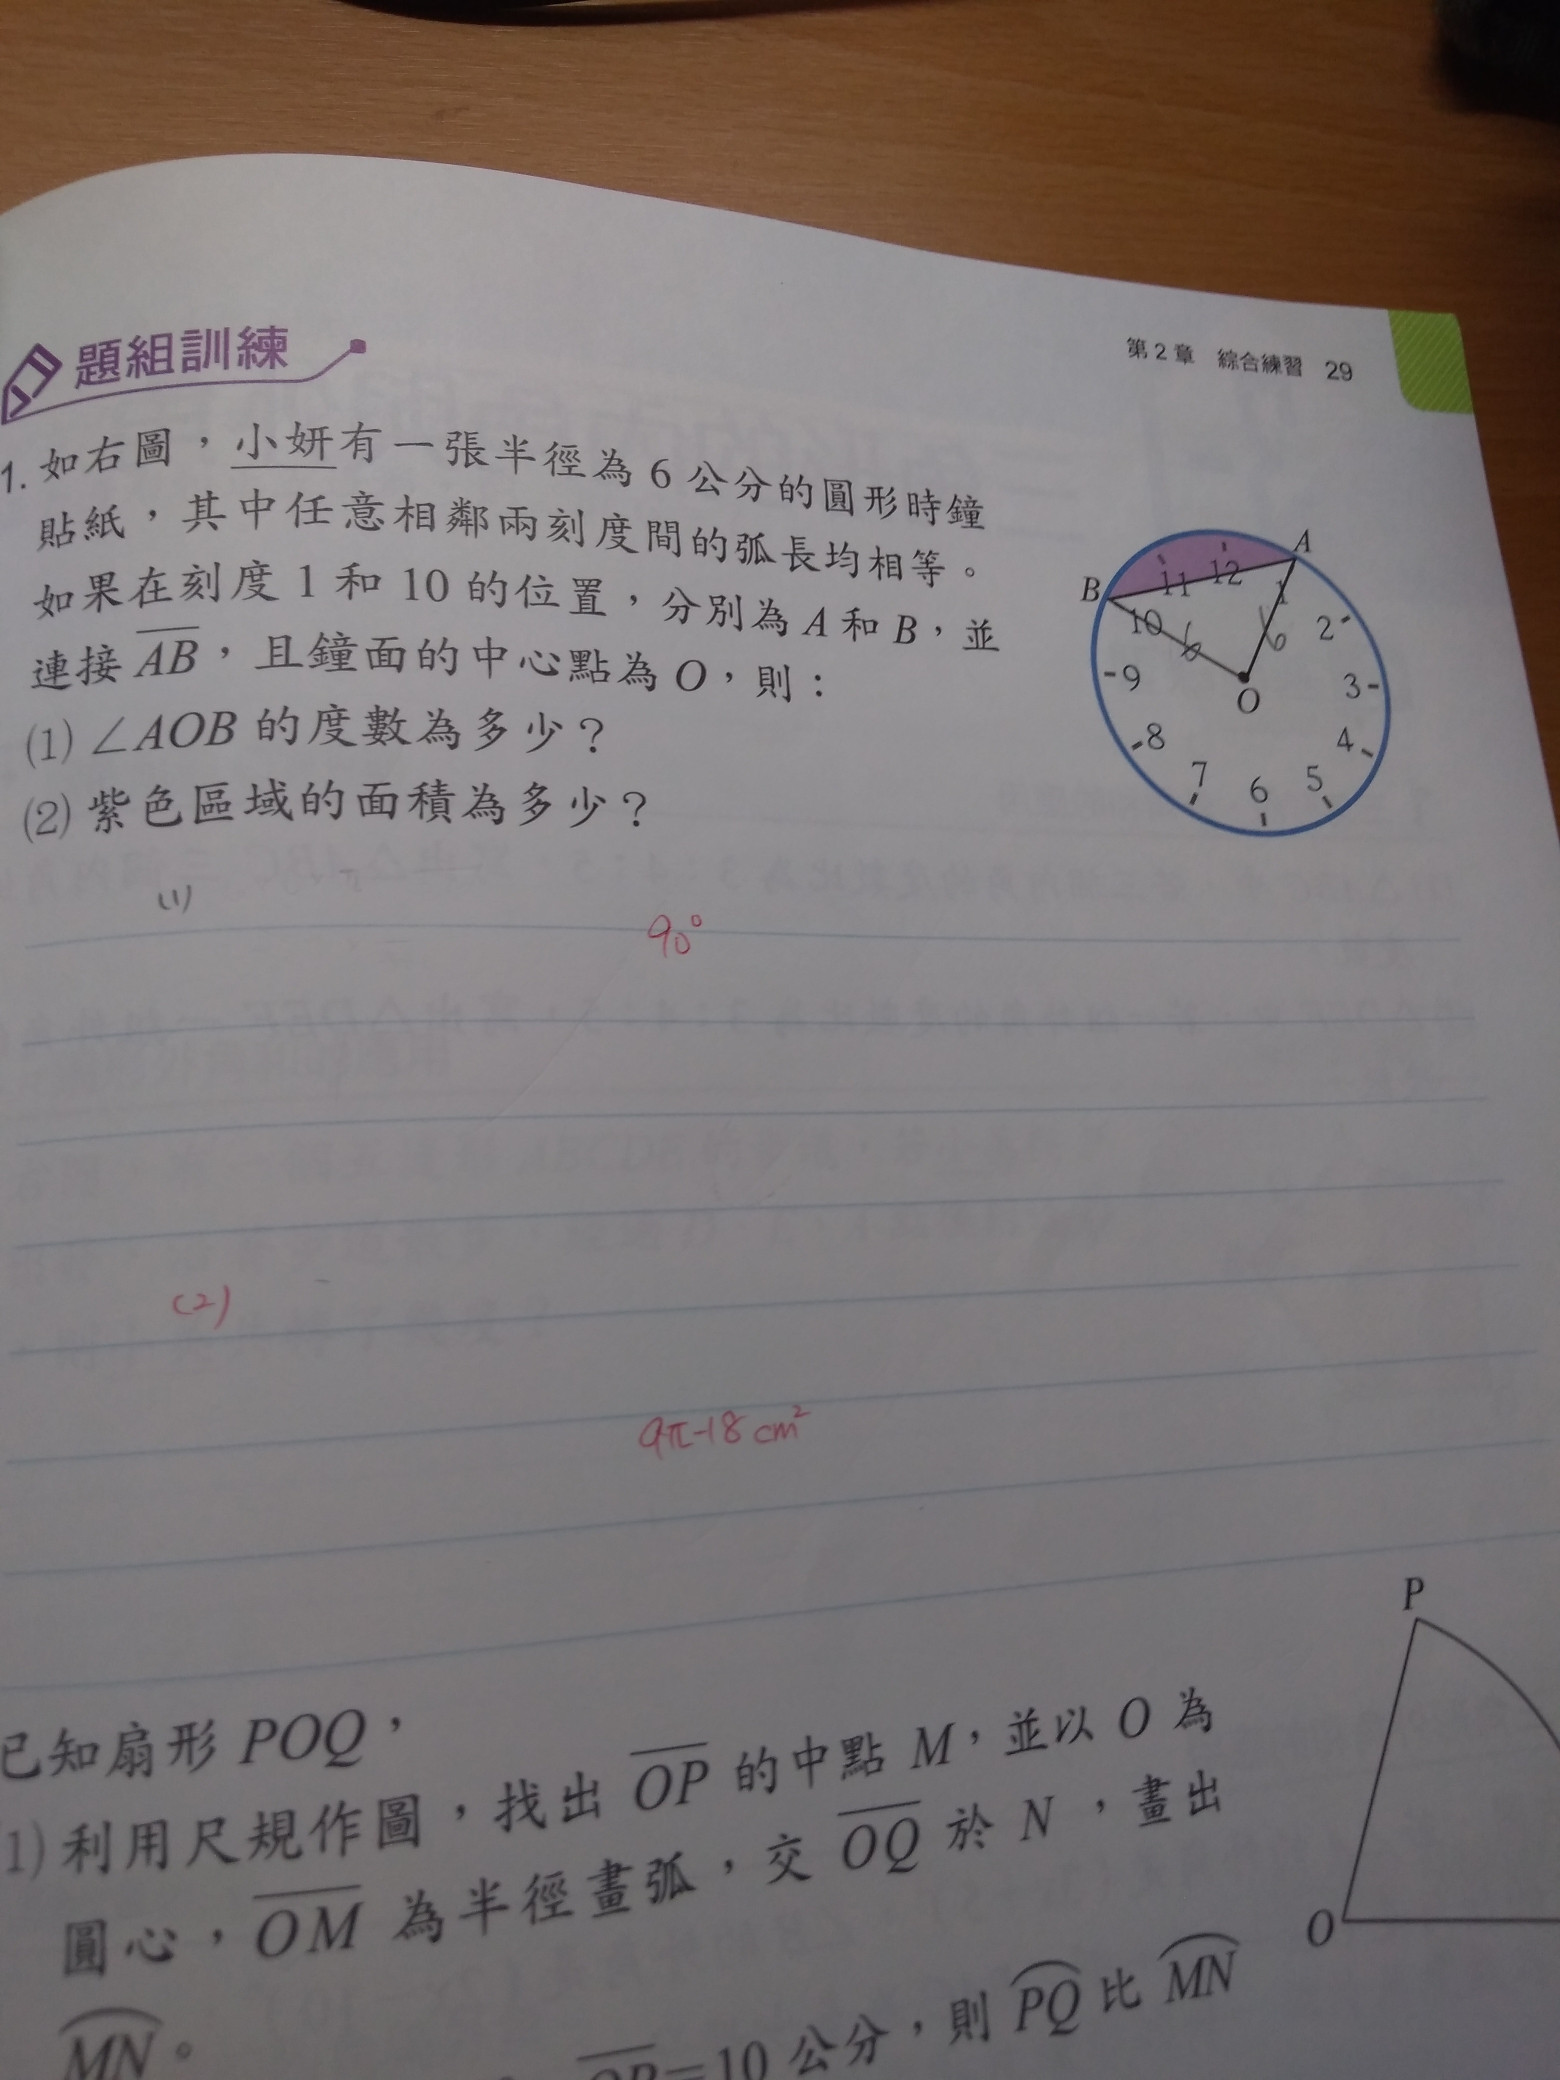 題組訓練
第2章 綜合練習 29
1. 如右圖，小妍有一張半徑為 6 公分的圓形時鐘
貼紙，其中任意相鄰兩刻度間的弧長均相等。
如果在刻度 1 和 10 的位置，分別為 A 和 B，並
連接 AB，且鐘面的中心點為 O，則：
(1) ∠AOB 的度數為多少？
(2) 紫色區域的面積為多少？
A
B
11 12 1
10 6 6 2
9 O 3
8 4
7 6 5
(1)
90°
(2)
9π-18 cm²
P
已知扇形 POQ，
1) 利用尺規作圖，找出 OP 的中點 M，並以 O 為
圓心，OM 為半徑畫弧，交 OQ 於 N，畫出
O
MN。
=10 公分，則 PQ 比 MN